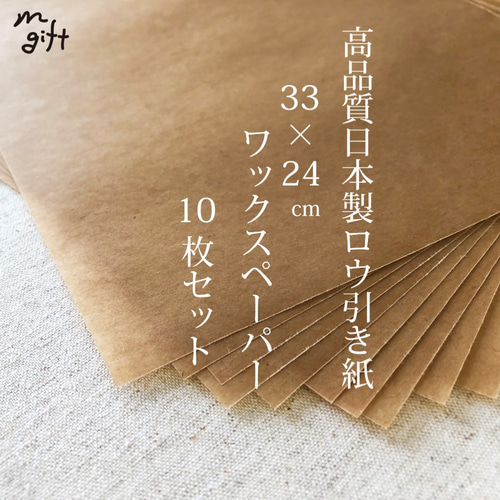 m
gift
高品質日本製ロウ引き紙
33×24cm
ワックスペーパー
10枚セット